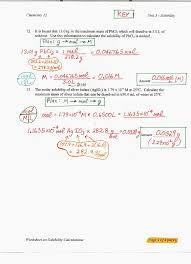 Chemistry 12
KEY
Unit 3 - Solubility
12. It is found that 13.0 g is the maximum mass of PbCl₂ which will dissolve in 3.0 L of
solution. Use this information to calculate the solubility of PbCl₂ in
Plan: g → mol → M
13.0 g PbCl₂ × 1 mol
278.2 g
M = 0.016 M
3.0 L
13. The molar solubility of silver iodate (AgIO₃) is 1.79 × 10⁻⁴ M at 25°C. Calculate the
maximum mass of silver iodate that can be dissolved in 650.0 mL of water at 25°C.
Plan: M → mol → g
mol = 1.79 × 10⁻⁴ M × 0.6500 L = 1.1635 × 10⁻⁴ mol
1.1635 × 10⁻⁴ mol AgIO₃ × 282.8 g
1 mol
0.0329 g
282.8 g/mol
Worksheet on Solubility Calculations